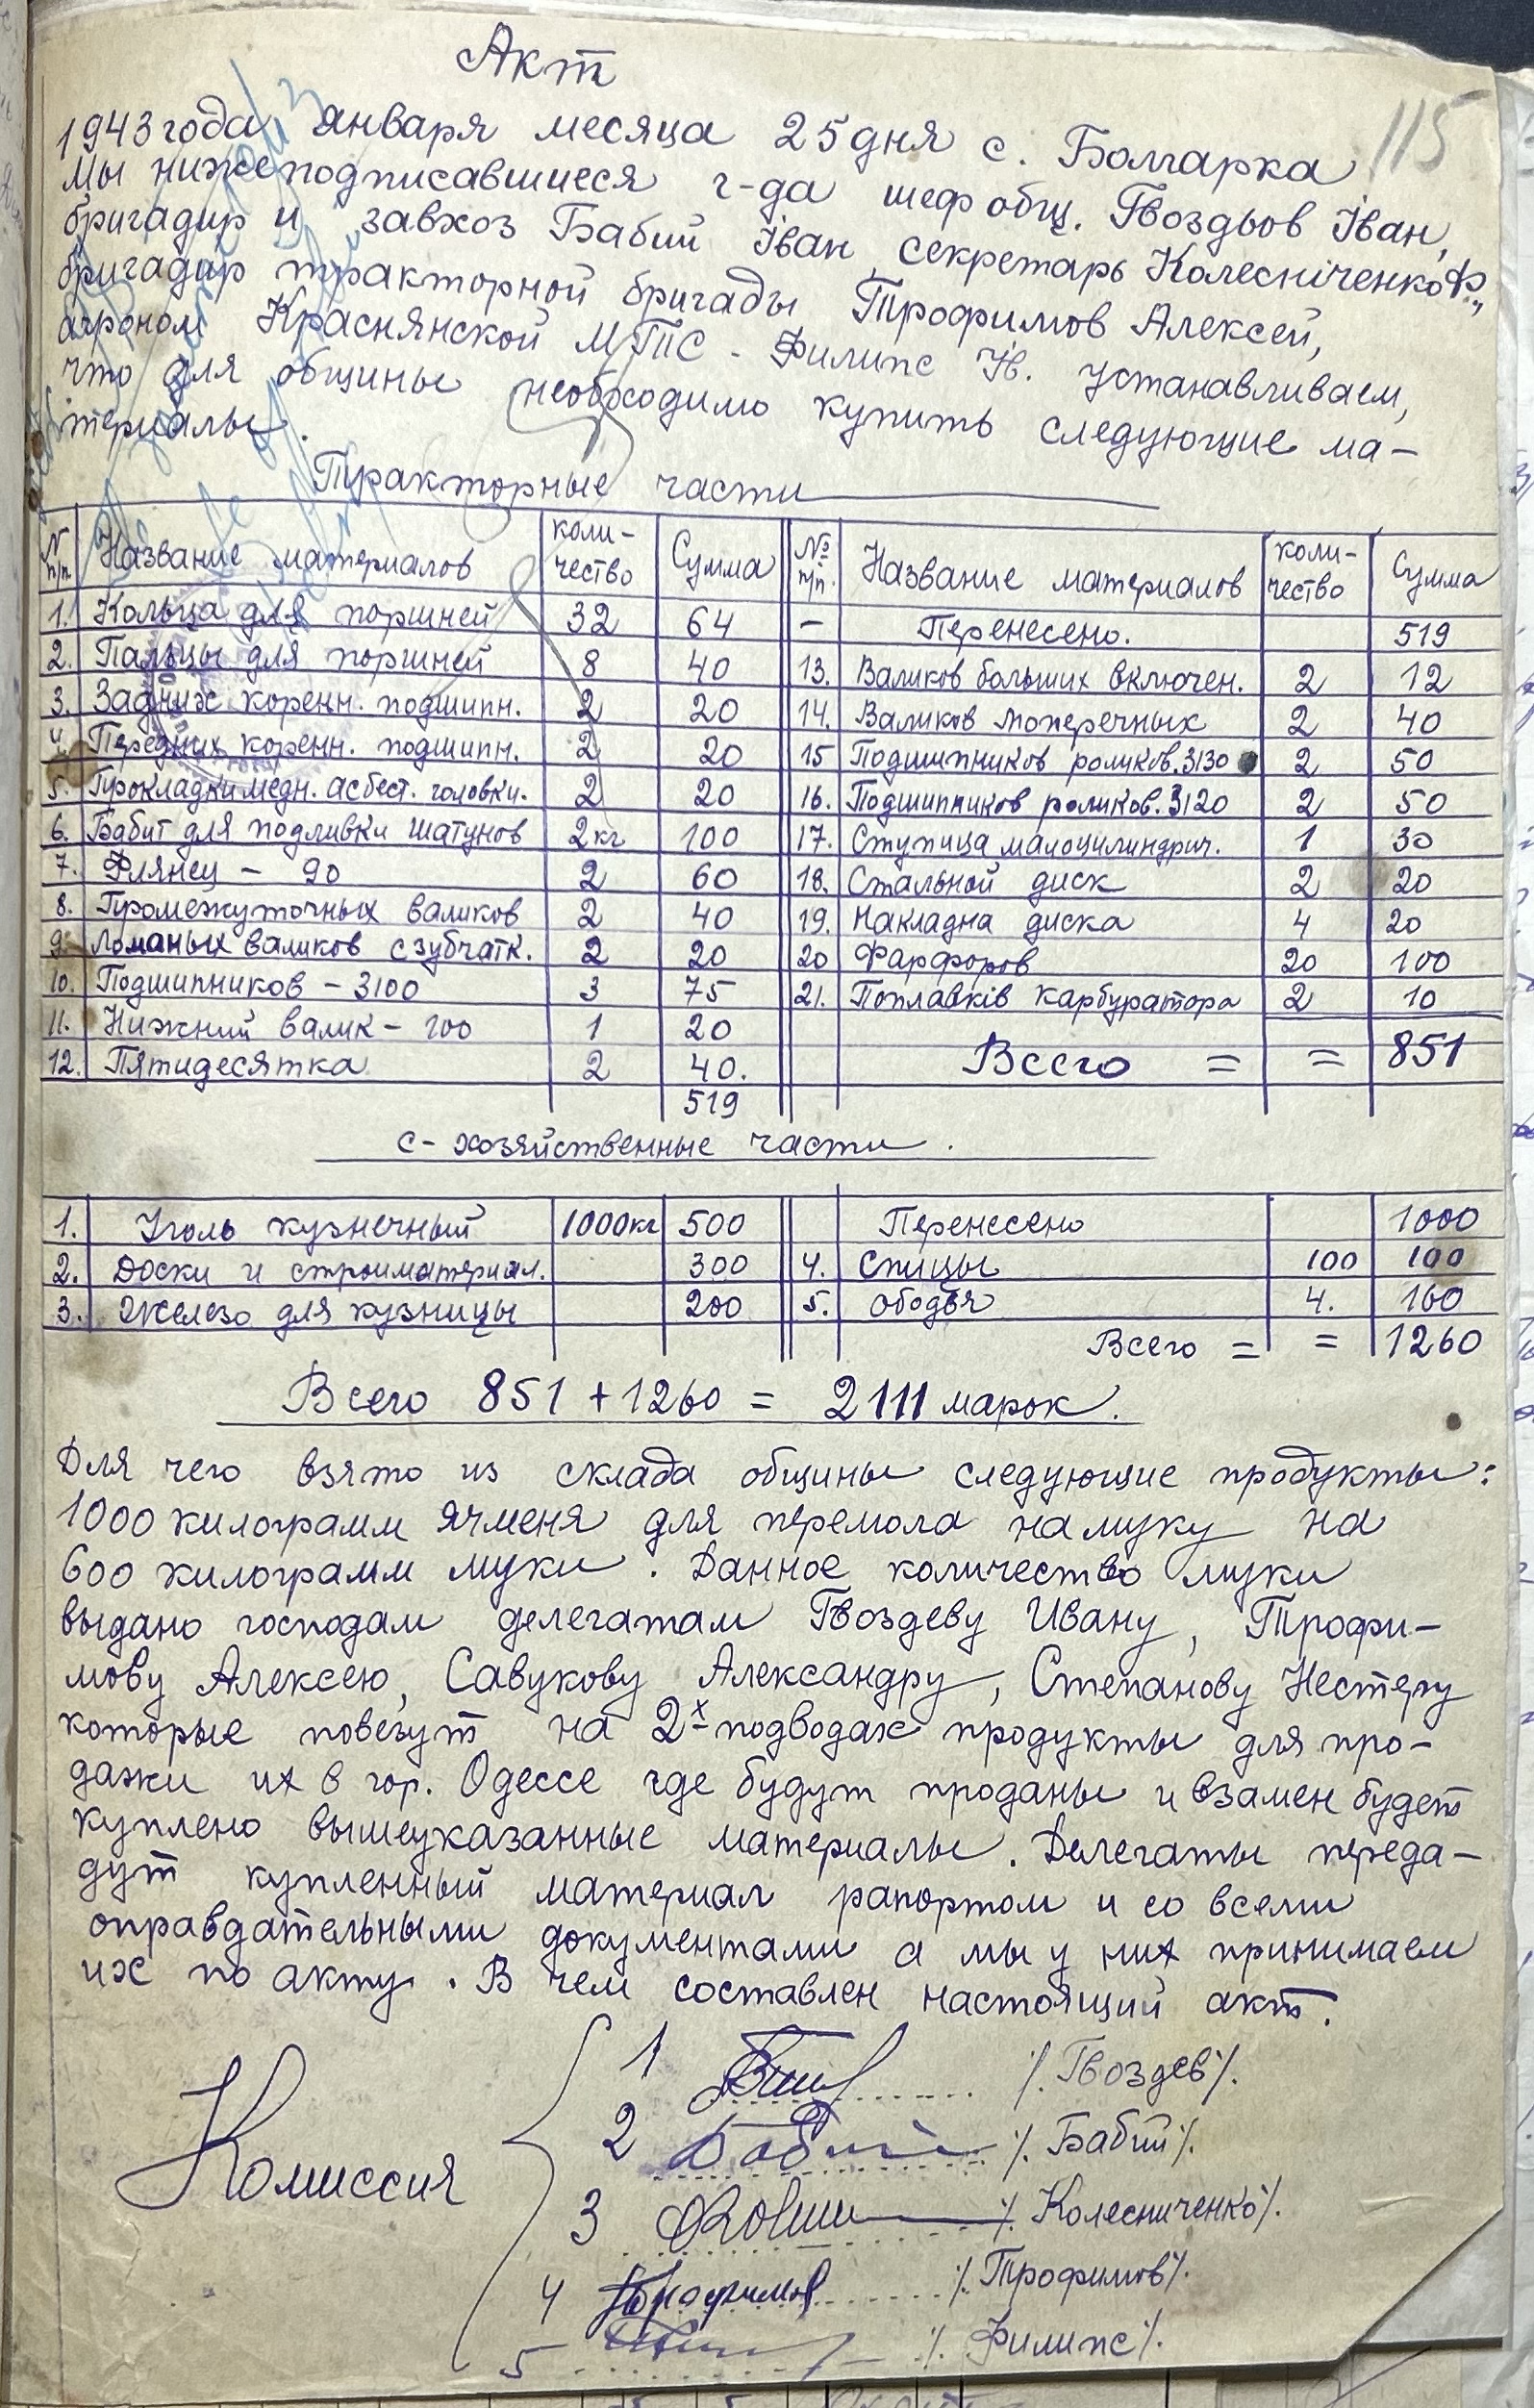 Акт
115
1943 года января месяца 25 дня с. Болгарка
Мы нижеподписавшиеся г-да шеф общ. Гвоздьов Іван,
бригадир и завхоз Бабий Іван, секретарь Колесніченко Ф.,
бригадир тракторной бригады Трофимов Алексей,
агроном Краснянской МТС - Филипс Ив. устанавливаем,
что для общины необходимо купить следующие ма-
териалы.
Тракторные части
N п/п Название материалов коли-чество Сумма № п/п. Название материалов коли-чество Сумма
1. Кольца для поршней 32 64 — Перенесено. 519
2. Пальцы для поршней 8 40 13. Валиков больших включен. 2 12
3. Задних коренн. подшипн. 2 20 14. Валиков поперечных 2 40
4. Передних коренн. подшипн. 2 20 15 Подшипников роликов. 3130 2 50
5. Прокладки медн. асбест. головки. 2 20 16. Подшипников роликов. 3120 2 50
6. Бабит для подливки шатунов 2 кг 100 17. Ступица малоцилиндрич. 1 30
7. Флянец - 90 2 60 18. Стальной диск 2 20
8. Промежуточных валиков 2 40 19. Накладна диска 4 20
9. Ломаных валиков с зубчатк. 2 20 20 Фарфоров 20 100
10. Подшипников - 3100 3 75 21. Поплавків карбуратора 2 10
11. Нижний валик - 700 1 20
12. Пятидесятка 2 40. Всего = = 851
519
с-хозяйственные части.
1. Уголь кузнечный 1000 кг 500 Перенесено 1000
2. Доски и строиматериал. 300 4. Спицы 100 100
3. Железо для кузницы 200 5. Ободья 4. 160
Всего = = 1260
Всего 851 + 1260 = 2111 марок.
Для чего взято из склада общины следующие продукты:
1000 килограмм ячменя для перемола на муку на
600 килограмм муки. Данное количество муки
выдано господам делегатам Гвоздеву Ивану, Трофи-
мову Алексею, Савукову Александру, Степанову Нестеру
которые повезут на 2х подводах продукты для про-
дажи их в гор. Одессе где будут проданы и взамен будет
куплено вышеуказанные материалы. Делегаты переда-
дут купленный материал рапортом и со всеми
оправдательными документами а мы у них принимаем
их по акту. В чем составлен настоящий акт.
Комиссия
1 /. Гвоздев /.
2 Бабий /. Бабий /.
3 /. Колесниченко /.
4 Трофимов /. Трофимов /.
5 /. Филипс /.